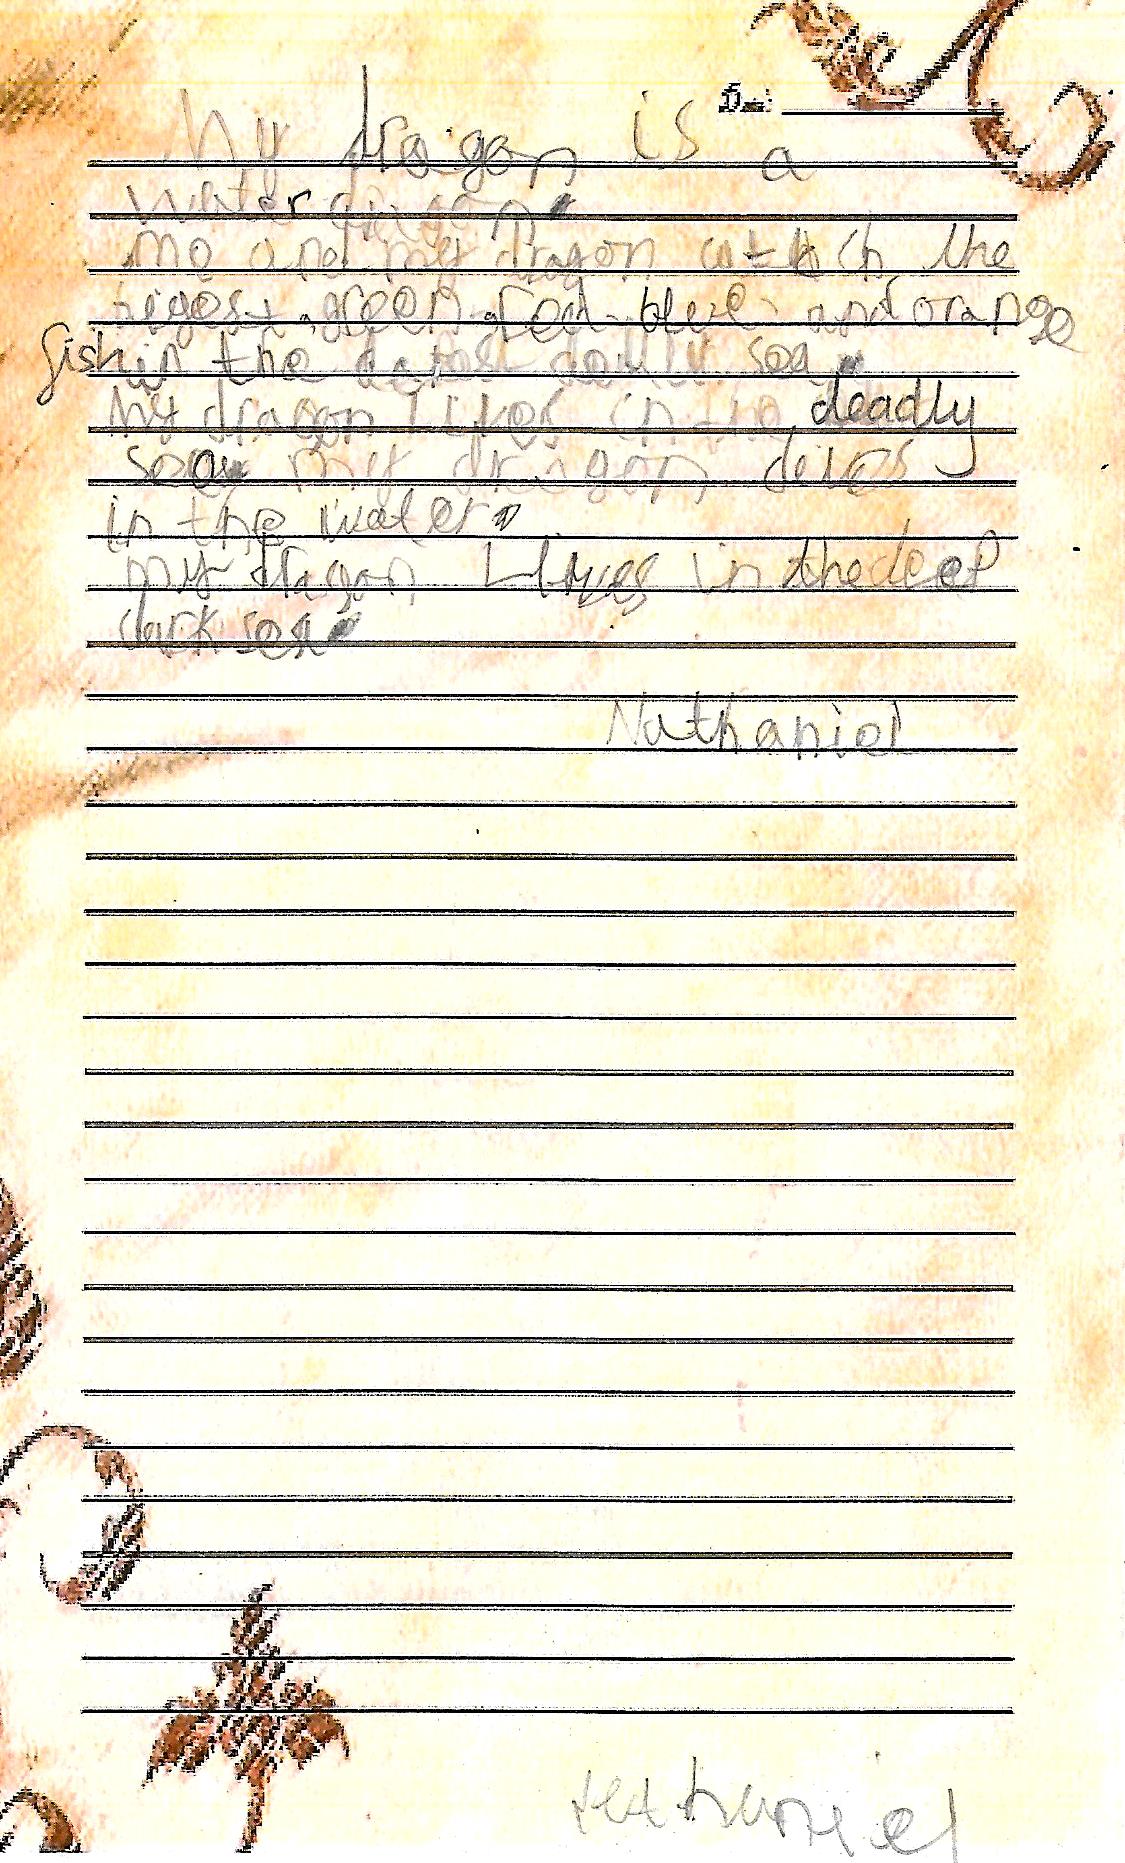 Date:
My dragon is a
water dragon.
me and my dragon catch the
green red blue and orange
fish in the sea.
My dragon likes in the deadly
sea my dragon dives
in the water.
my dragon Lives in the deep
dark sea.
Nathaniel